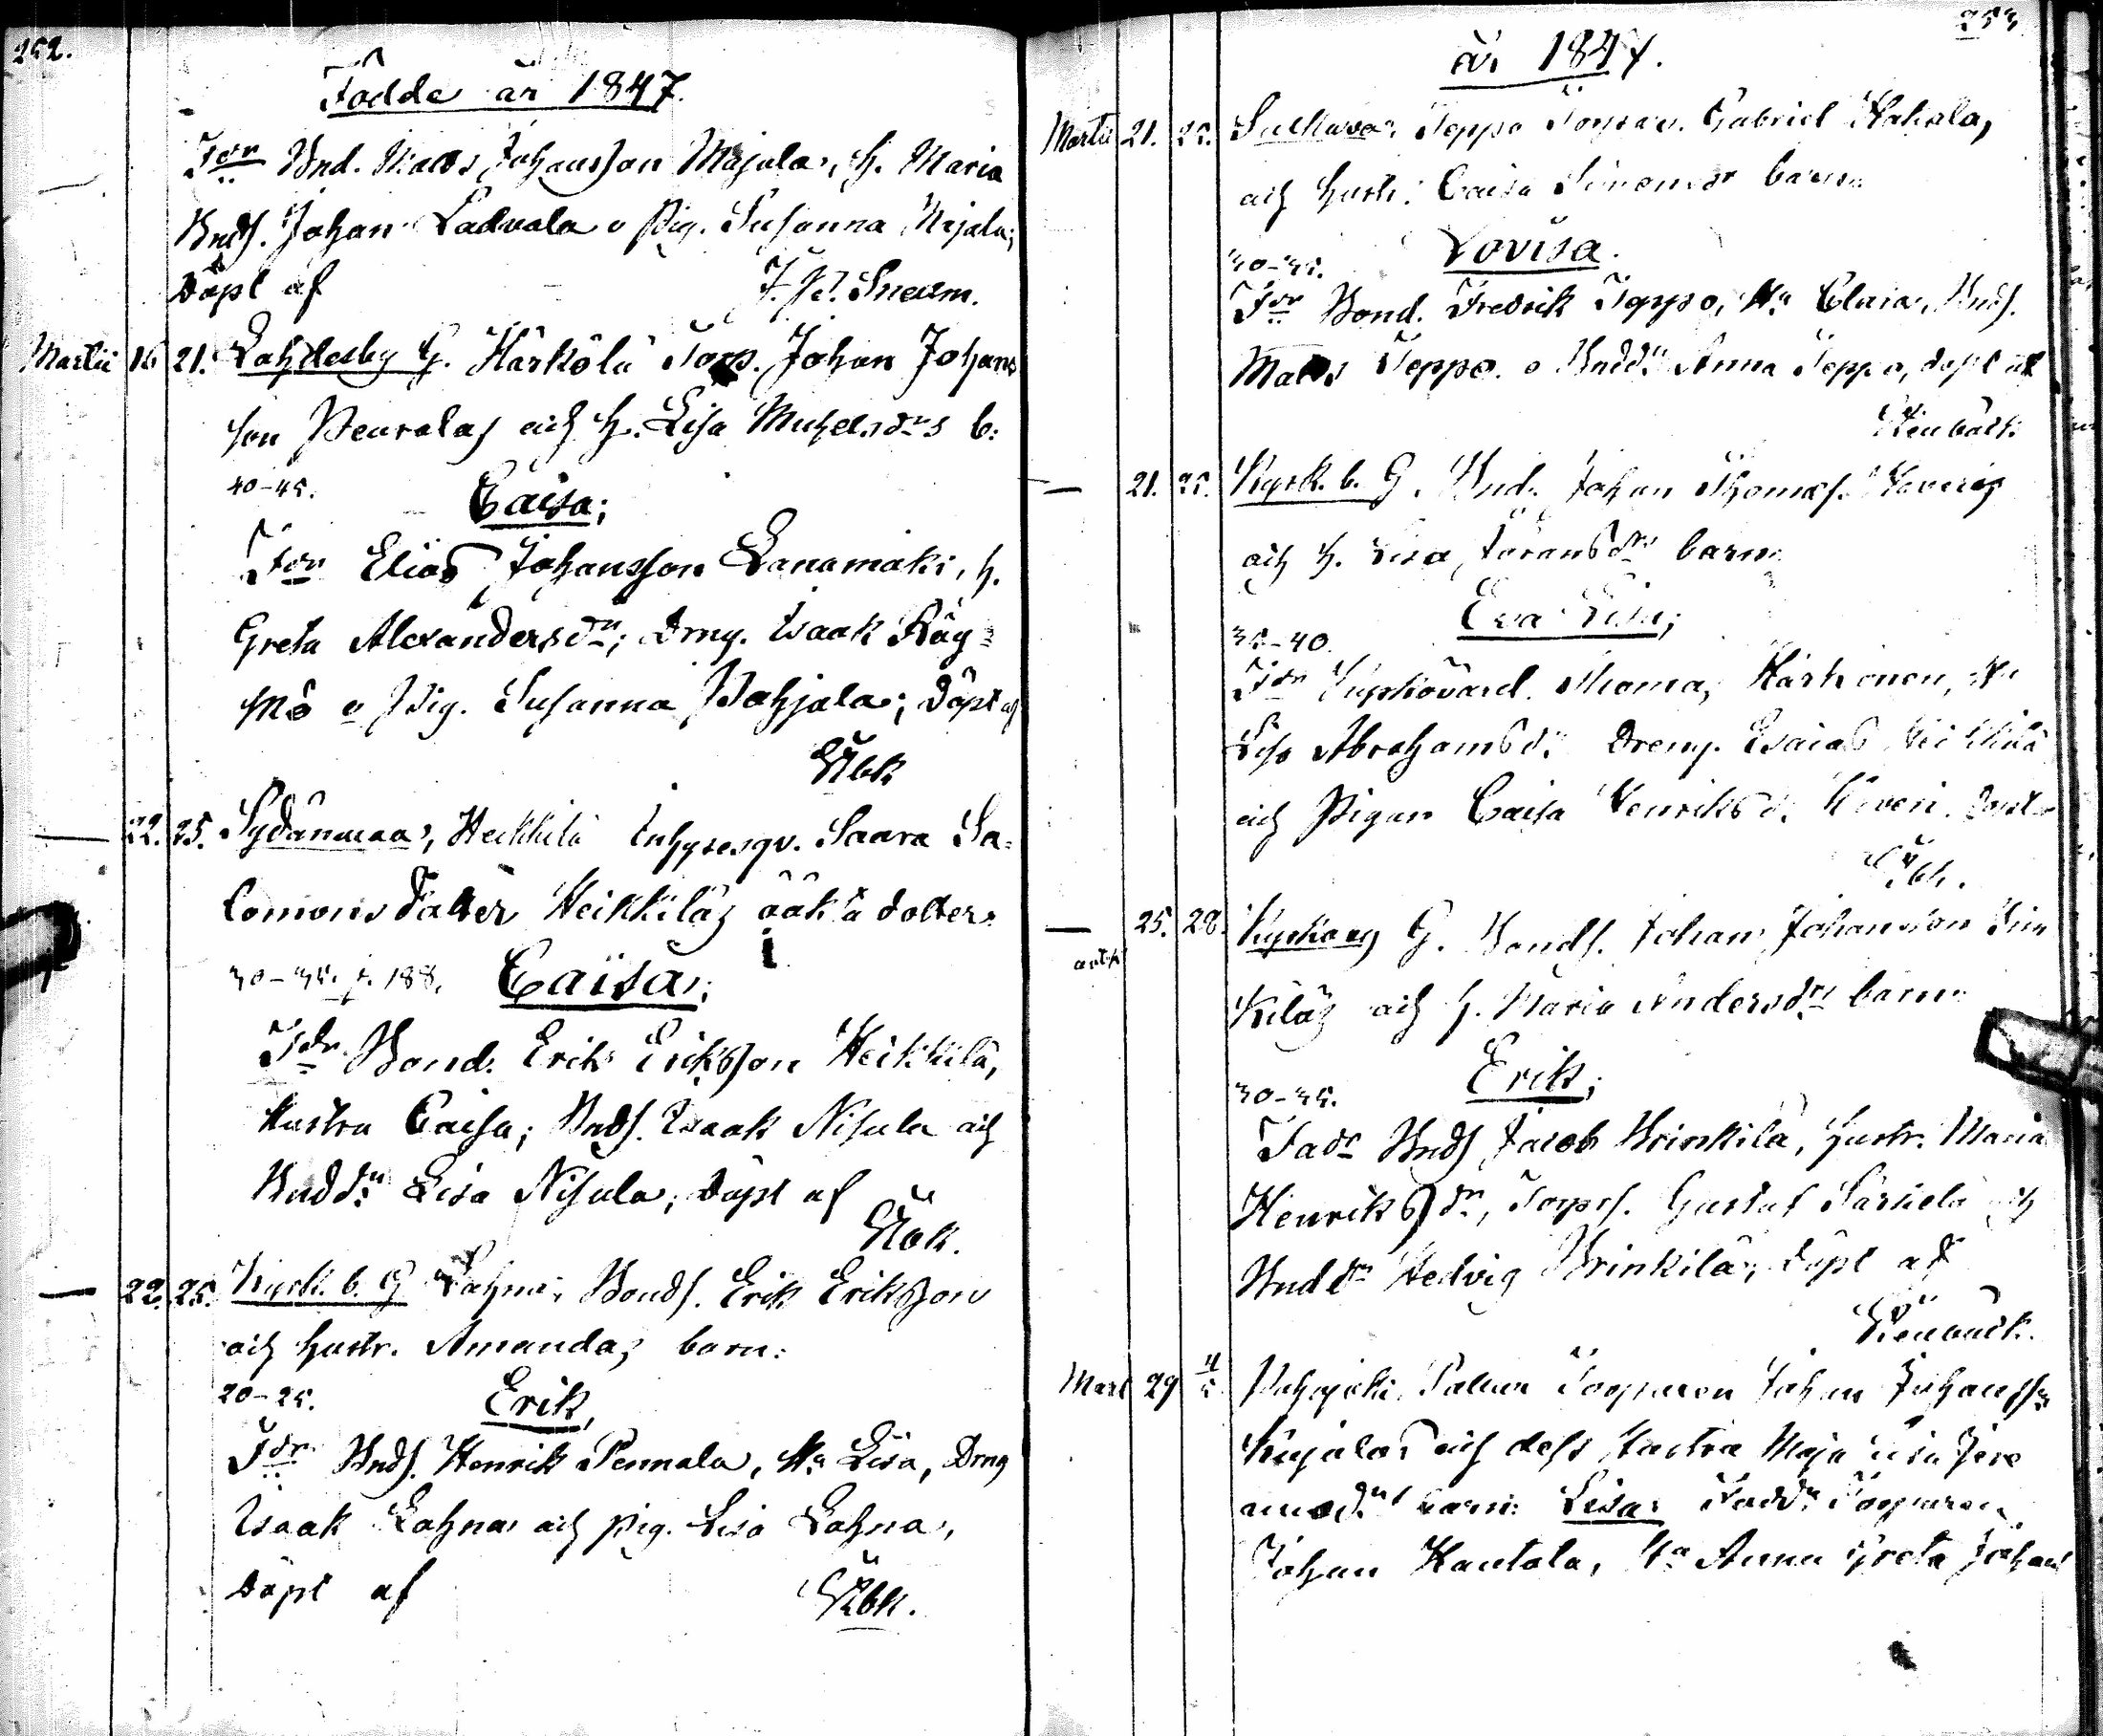 252.
Födde år 1847.
Fdr Bnd. Matts Johansson Majala, h. Maria
Bnds. Johan Ladvala o pig. Susanna Majala;
döpt af J. J. Snellm.
Martii 16 21. Lahdesby G. Härkölä Torp. Johan Johans
son Peuralas och h. Lisa Michelsdrs b:
40-45. Caisa;
Fdr Elias Johansson Lanamäki, h.
Greta Alexandersdr; Dräng. Isaak Räy=
mö o Pig. Susanna Pohjala; döpt af
Stbk
— 22. 25. Sydänmaa, Heikkilä Inhysesqv. Saara Sa=
lomons dotter Heikkiläs oäkta dotter:
30-35. p. 188. Caisa;
Fdr. Bond. Erik Eriksson Heikkilä,
hustru Caisa; Bnds. Isaak Nisula och
Bnddr Lisa Nisula; döpt af
Stbk.
— 22. 25. Kyrk. b. G Lahna, Bonds. Erik Eriksson
och hustr. Amandas barn:
20-25. Erik,
Fdr. Bnds. Henrik Pennala, Ha Lisa, Drng
Isaak Lahna och pig. Lisa Lahna,
döpt af Stbk.
253
år 1847.
Martii 21. 25. Teppo Torpar. Gabriel Hakala,
och hustr. Caisa Simonsdr barn
30-35. Lovisa.
Fdr Bond. Fredrik Teppo, Ha Clara, Bnds.
Matts Teppo o Bnddr Anna Teppo, döpt af
Stenbäck.
— 21. 25. Kyrk. b. G. Bnd. Johan Thomas.
och h. Lisa Göransdrs barn
35-40. Eva Lisa;
Fdr Thomas Karhonen, Ha
Lisa Abrahamsdr Dreng. Esaias Heikkilä
och Pigan Caisa Henriksd. döpt
Stbk.
— 25. 28. Kyrkoby G. Bonds. Johan Johansson Brin
kiläs och h. Maria Andersdrs barn
30-35. Erik;
Fadr Bnds Jacob Brinkilä, hustr. Maria
Henriksdr, Torps. Gustaf Särkelä och
Bnddr Hedvig Brinkilä; döpt af
Stenbäck.
Mart 29 Torparen Johan Johansson
och dess hustru Maja Lisa Jere
miædrs barn: Lisa: Faddr Torparen
Johan Kantola, Ha Anna Greta Johans